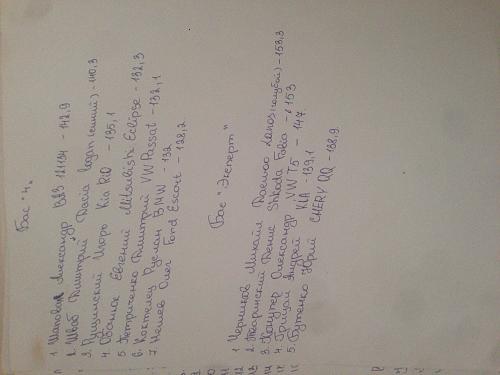 Бас "4"
1 Шаповал Александр ВАЗ 21134 - 142,9
2. Швab Дмитрий Dacia logan (синий) - 140,3
3. Рущинский Игорь Kia Rio - 135,1
4. Евгений Mitsubishi Eclipse - 132,3
5 Петриченко Дмитрий VW Passat - 132,1
6. Руслан BMW - 132
7 Нешев Олег Ford Escort - 128,2
Бас "Эксперт"
1 Черников Михайл Daewoo Lanos (голубой) - 158,3
2. Тваринский Денис Shkoda Fabia - 153
3. Александр VW T5 - 147
4. Грицай Андрей KIA - 139,1
5. Бутенко Юрий CHERY QQ - 138,9